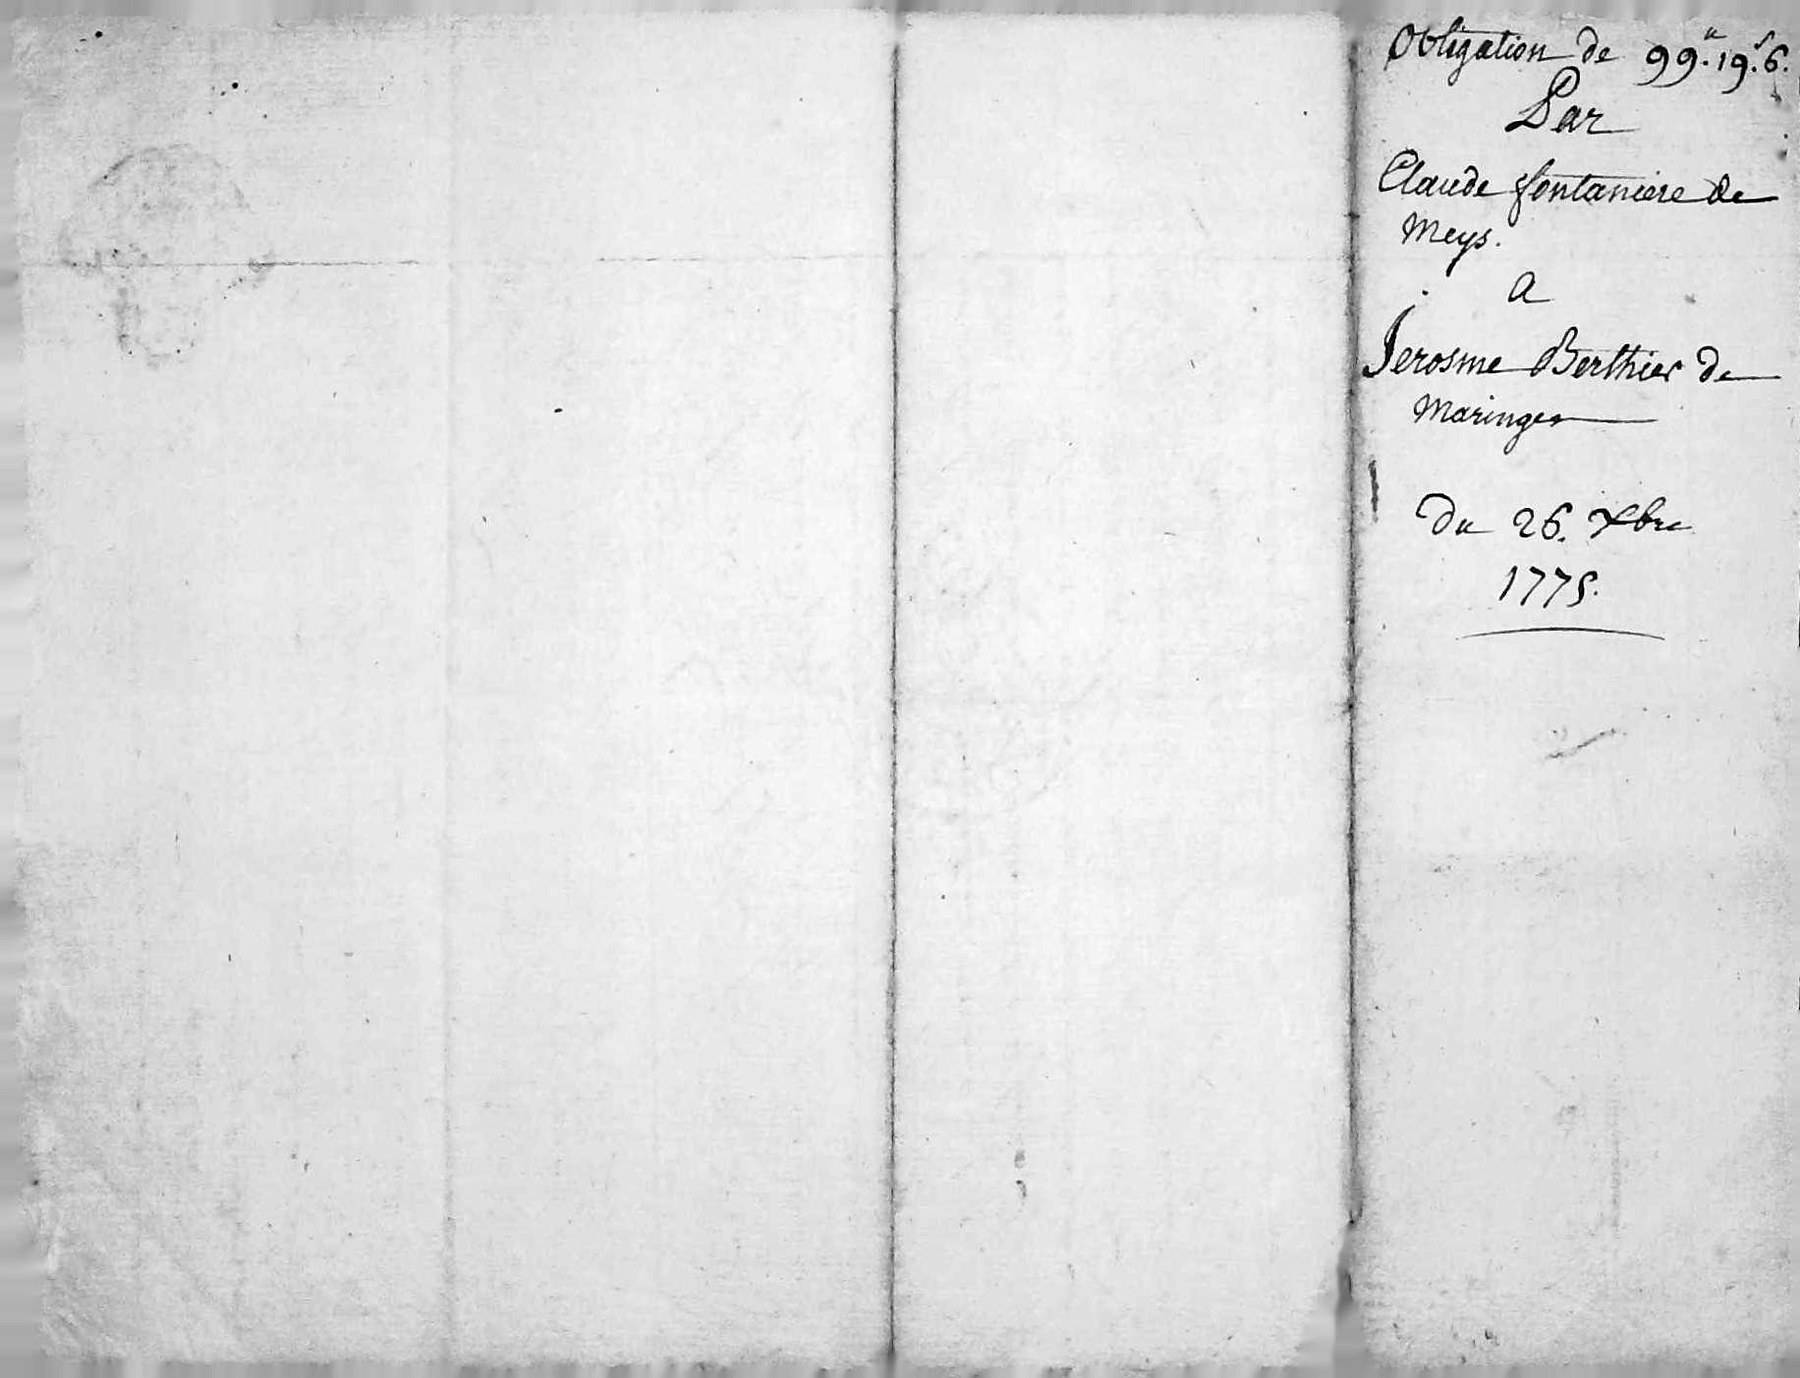 Obligation de 99.ᵗᵗ 19.ˢ 6.
Par
Claude fontaniere de
Meys.
a
Jerosme Berthier de
Maringes
Du 26. Xbre
1775.